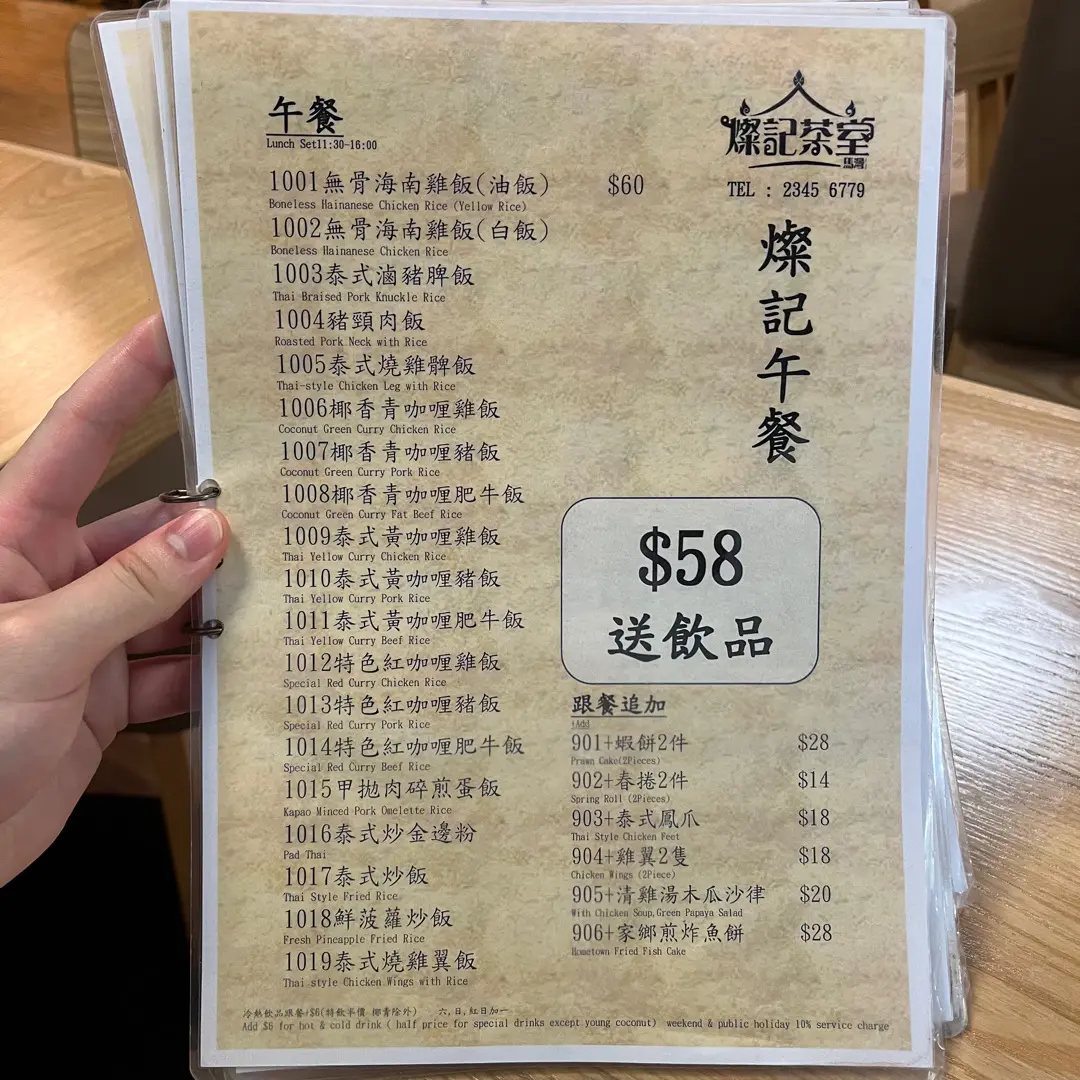 午餐
Lunch Set11:30-16:00
1001無骨海南雞飯(油飯) $60
Boneless Hainanese Chicken Rice (Yellow Rice)
1002無骨海南雞飯(白飯)
Boneless Hainanese Chicken Rice
1003泰式滷豬脾飯
Thai Braised Pork Knuckle Rice
1004豬頸肉飯
Roasted Pork Neck with Rice
1005泰式燒雞髀飯
Thai-style Chicken Leg with Rice
1006椰香青咖喱雞飯
Coconut Green Curry Chicken Rice
1007椰香青咖喱豬飯
Coconut Green Curry Pork Rice
1008椰香青咖喱肥牛飯
Coconut Green Curry Fat Beef Rice
1009泰式黃咖喱雞飯
Thai Yellow Curry Chicken Rice
1010泰式黃咖喱豬飯
Thai Yellow Curry Pork Rice
1011泰式黃咖喱肥牛飯
Thai Yellow Curry Beef Rice
1012特色紅咖喱雞飯
Special Red Curry Chicken Rice
1013特色紅咖喱豬飯
Special Red Curry Pork Rice
1014特色紅咖喱肥牛飯
Special Red Curry Beef Rice
1015甲拋肉碎煎蛋飯
Kapao Minced Pork Omelette Rice
1016泰式炒金邊粉
Pad Thai
1017泰式炒飯
Thai Style Fried Rice
1018鮮菠蘿炒飯
Fresh Pineapple Fried Rice
1019泰式燒雞翼飯
Thai style Chicken Wings with Rice
燦記茶堂
馬灣
TEL : 2345 6779
燦記午餐
$58
送飲品
跟餐追加
+Add
901+蝦餅2件 $28
Prawn Cake(2Pieces)
902+春捲2件 $14
Spring Roll (2Pieces)
903+泰式鳳爪 $18
Thai Style Chicken Feet
904+雞翼2隻 $18
Chicken Wings (2Piece)
905+清雞湯木瓜沙律 $20
With Chicken Soup,Green Papaya Salad
906+家鄉煎炸魚餅 $28
Hometown Fried Fish Cake
冷熱飲品跟餐+$6(特飲半價 椰青除外) 六,日,紅日加一
Add $6 for hot & cold drink ( half price for special drinks except young coconut) weekend & public holiday 10% service charge